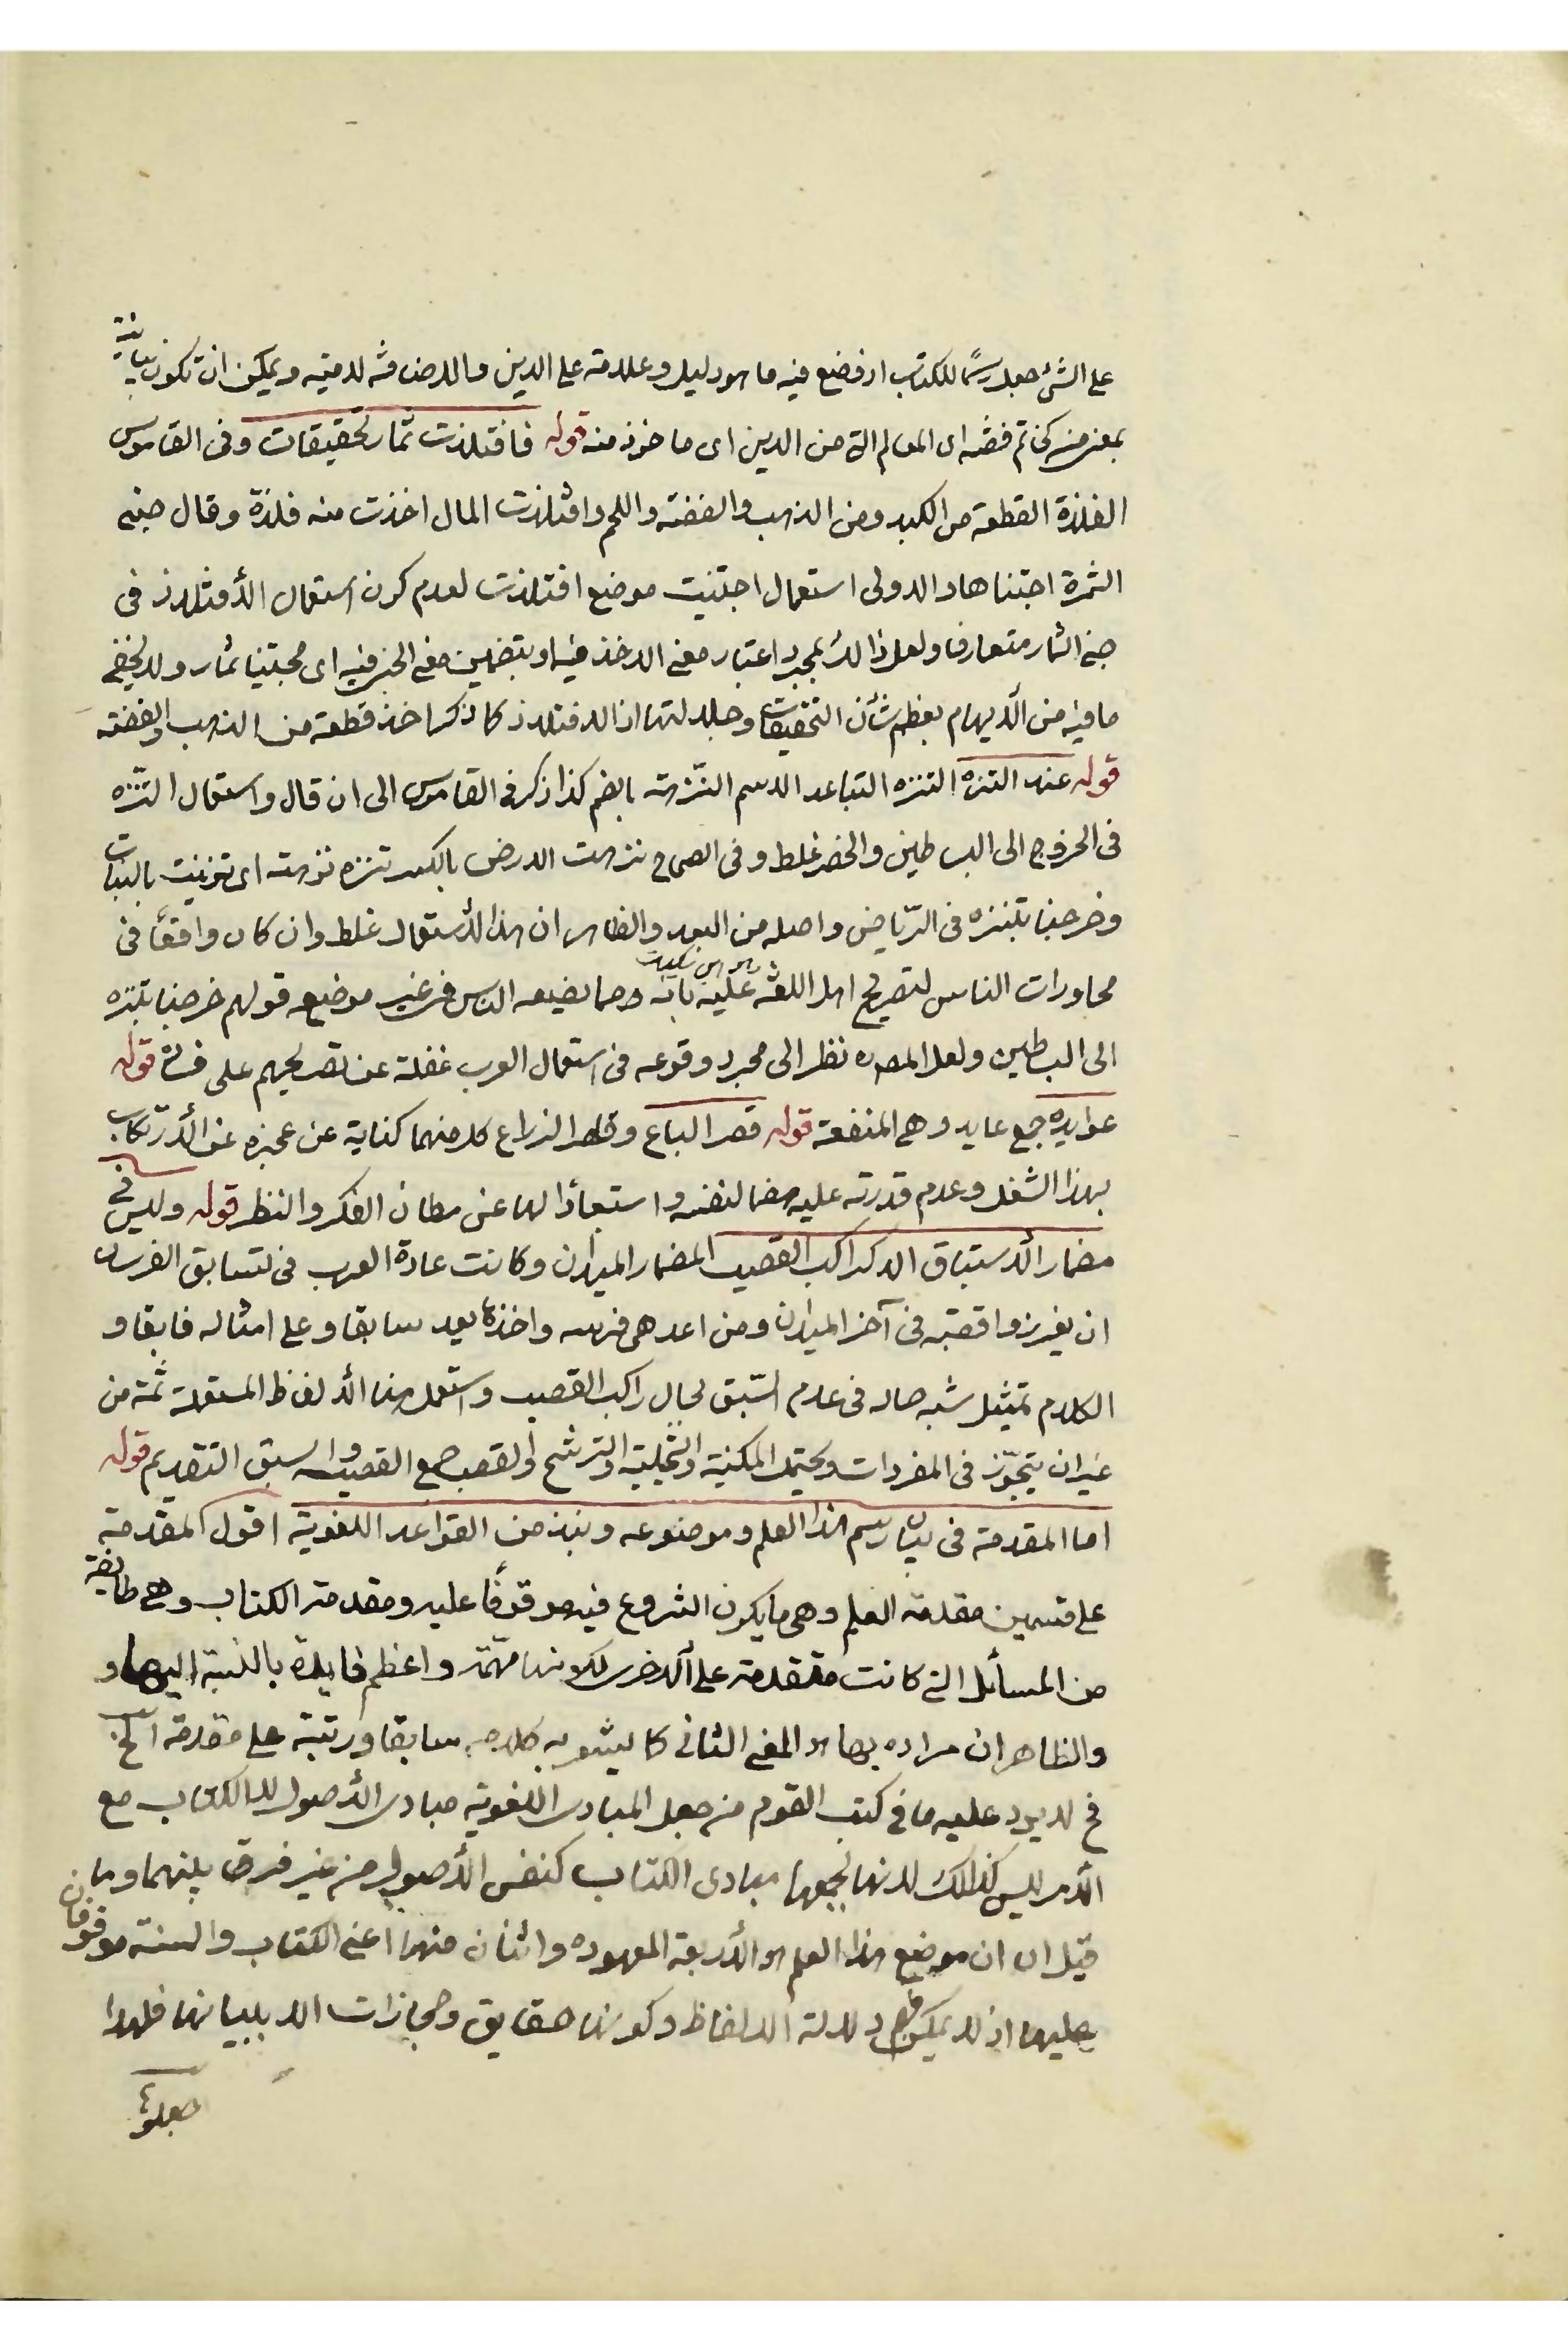 على الشئ جعل رسمًا للكتاب اذ فضع فيه ما هو دليل وعلامة على الدين والاضافة لامية ويمكن ان تكون بيانية
بمعنى من كخاتم فضة اى المعالم التى من الدين اى ماخوذ منه قوله فافتلذت ثمار تحقيقات وفى القاموس
الفلذة القطعة من الكبد ومن الذهب والفضة واللحم وافتلذت المال اخذت منه فلذة وقال جنى
الثمرة اجتناها والاولى استعمال اجتنيت موضع افتلذت لعدم كون استعمال الأفتلاذ فى
جنى الثمار متعارفا ولعل ذالك بمجرد اعتبار معنى الاخذ فيه او بتضمين معنى الجنى فيه اى مجتنيا ثمار ولا يخفى
ما فيه من الأيهام بعظم شأن التحقيقات وجلالتها اذ الافتلاذ كما ذكر اخذ قطعة من الذهب والفضة
قوله عند التنزه التنزه التباعد الاسم النّزهة بالضم كذا ذكر فى القاموس الى ان قال واستعمال التنزّه
فى الخروج الى البساطين والخضر غلط وفى الصحاح نزهت الارض بالكسر تنزه نزهة اى تزينت بالنبات
وخرجنا نتنزه فى الرّياض واصله من البعد والظاهر ان هذا الأستعمال غلط وان كان واقعًا فى
محاورات الناس لتصريح اهل اللغة عليه بانه ومما يضيعه الناس فى غير موضعه قولهم خرجنا نتنزه
الى البساطين ولعل المصره نظر الى مجرد وقوعه فى استعمال العرب غفلة عن تصريحهم على فساده قوله
عوايده جمع عايد وهى المنفعة قوله قصر الباع وقصر الذراع كل منهما كناية عن عجزه عن الأرتكاب
بهذا الشغل وعدم قدرته عليه هضما لنفسه واستبعادًا لها عن مظان الفكر والنظر قوله وليس فى
مضمار الأستباق الا كراكب القصيب المضمار الميدان وكانت عادة العرب فى تسابق الفرسان
ان يغرزوا قصبة فى آخر الميدان ومن اعدى فرسه واخذها يعد سابقا وعلى امثاله فايقا و
الكلام تمثيل شبه حاله فى عدم السّبق بحال راكب القصيب واستعمل هنا الألفاظ المستعملة ثمة من
غير ان يتجوّز فى المفردات ويحتمل المكنية والتخيلية والترشيح والقصب جمع القصيب والسبق التقديم قوله
اما المقدمة فى بيان رسم هذا العلم وموضوعه ونبذ من القواعد اللغوية اقول المقدمة
على قسمين مقدمة العلم وهى ما يكون الشروع فيه موقوفًا عليه ومقدمة الكتاب وهى طايفة
من المسائل التى كانت متقدمة على الأخرى لكونها مهمّة واعظم فايدة بالنسبة اليها و
والظاهر ان مراده بها هو المعنى الثانى كما يشعر به كلامه سابقا ورتبته على مقدمة الخ
فح لا يرد عليه ما فى كتب القوم من جعل المبادى اللغوية مبادى الأصول لا الكتاب مع
الأمر ليس كذالك لانها بجمعها مبادى الكتاب كنفس الأصول من غير فرق بينهما وما
قيل ان ان موضع هذا العلم هو الأربعة المعهوده واثنان منها اعنى الكتاب والسنة موقوفان
عليها اذ لا يمكن دلالة الالفاظ وكونها حقايق ومجازات الا ببيانها فلهذا
جعلوا